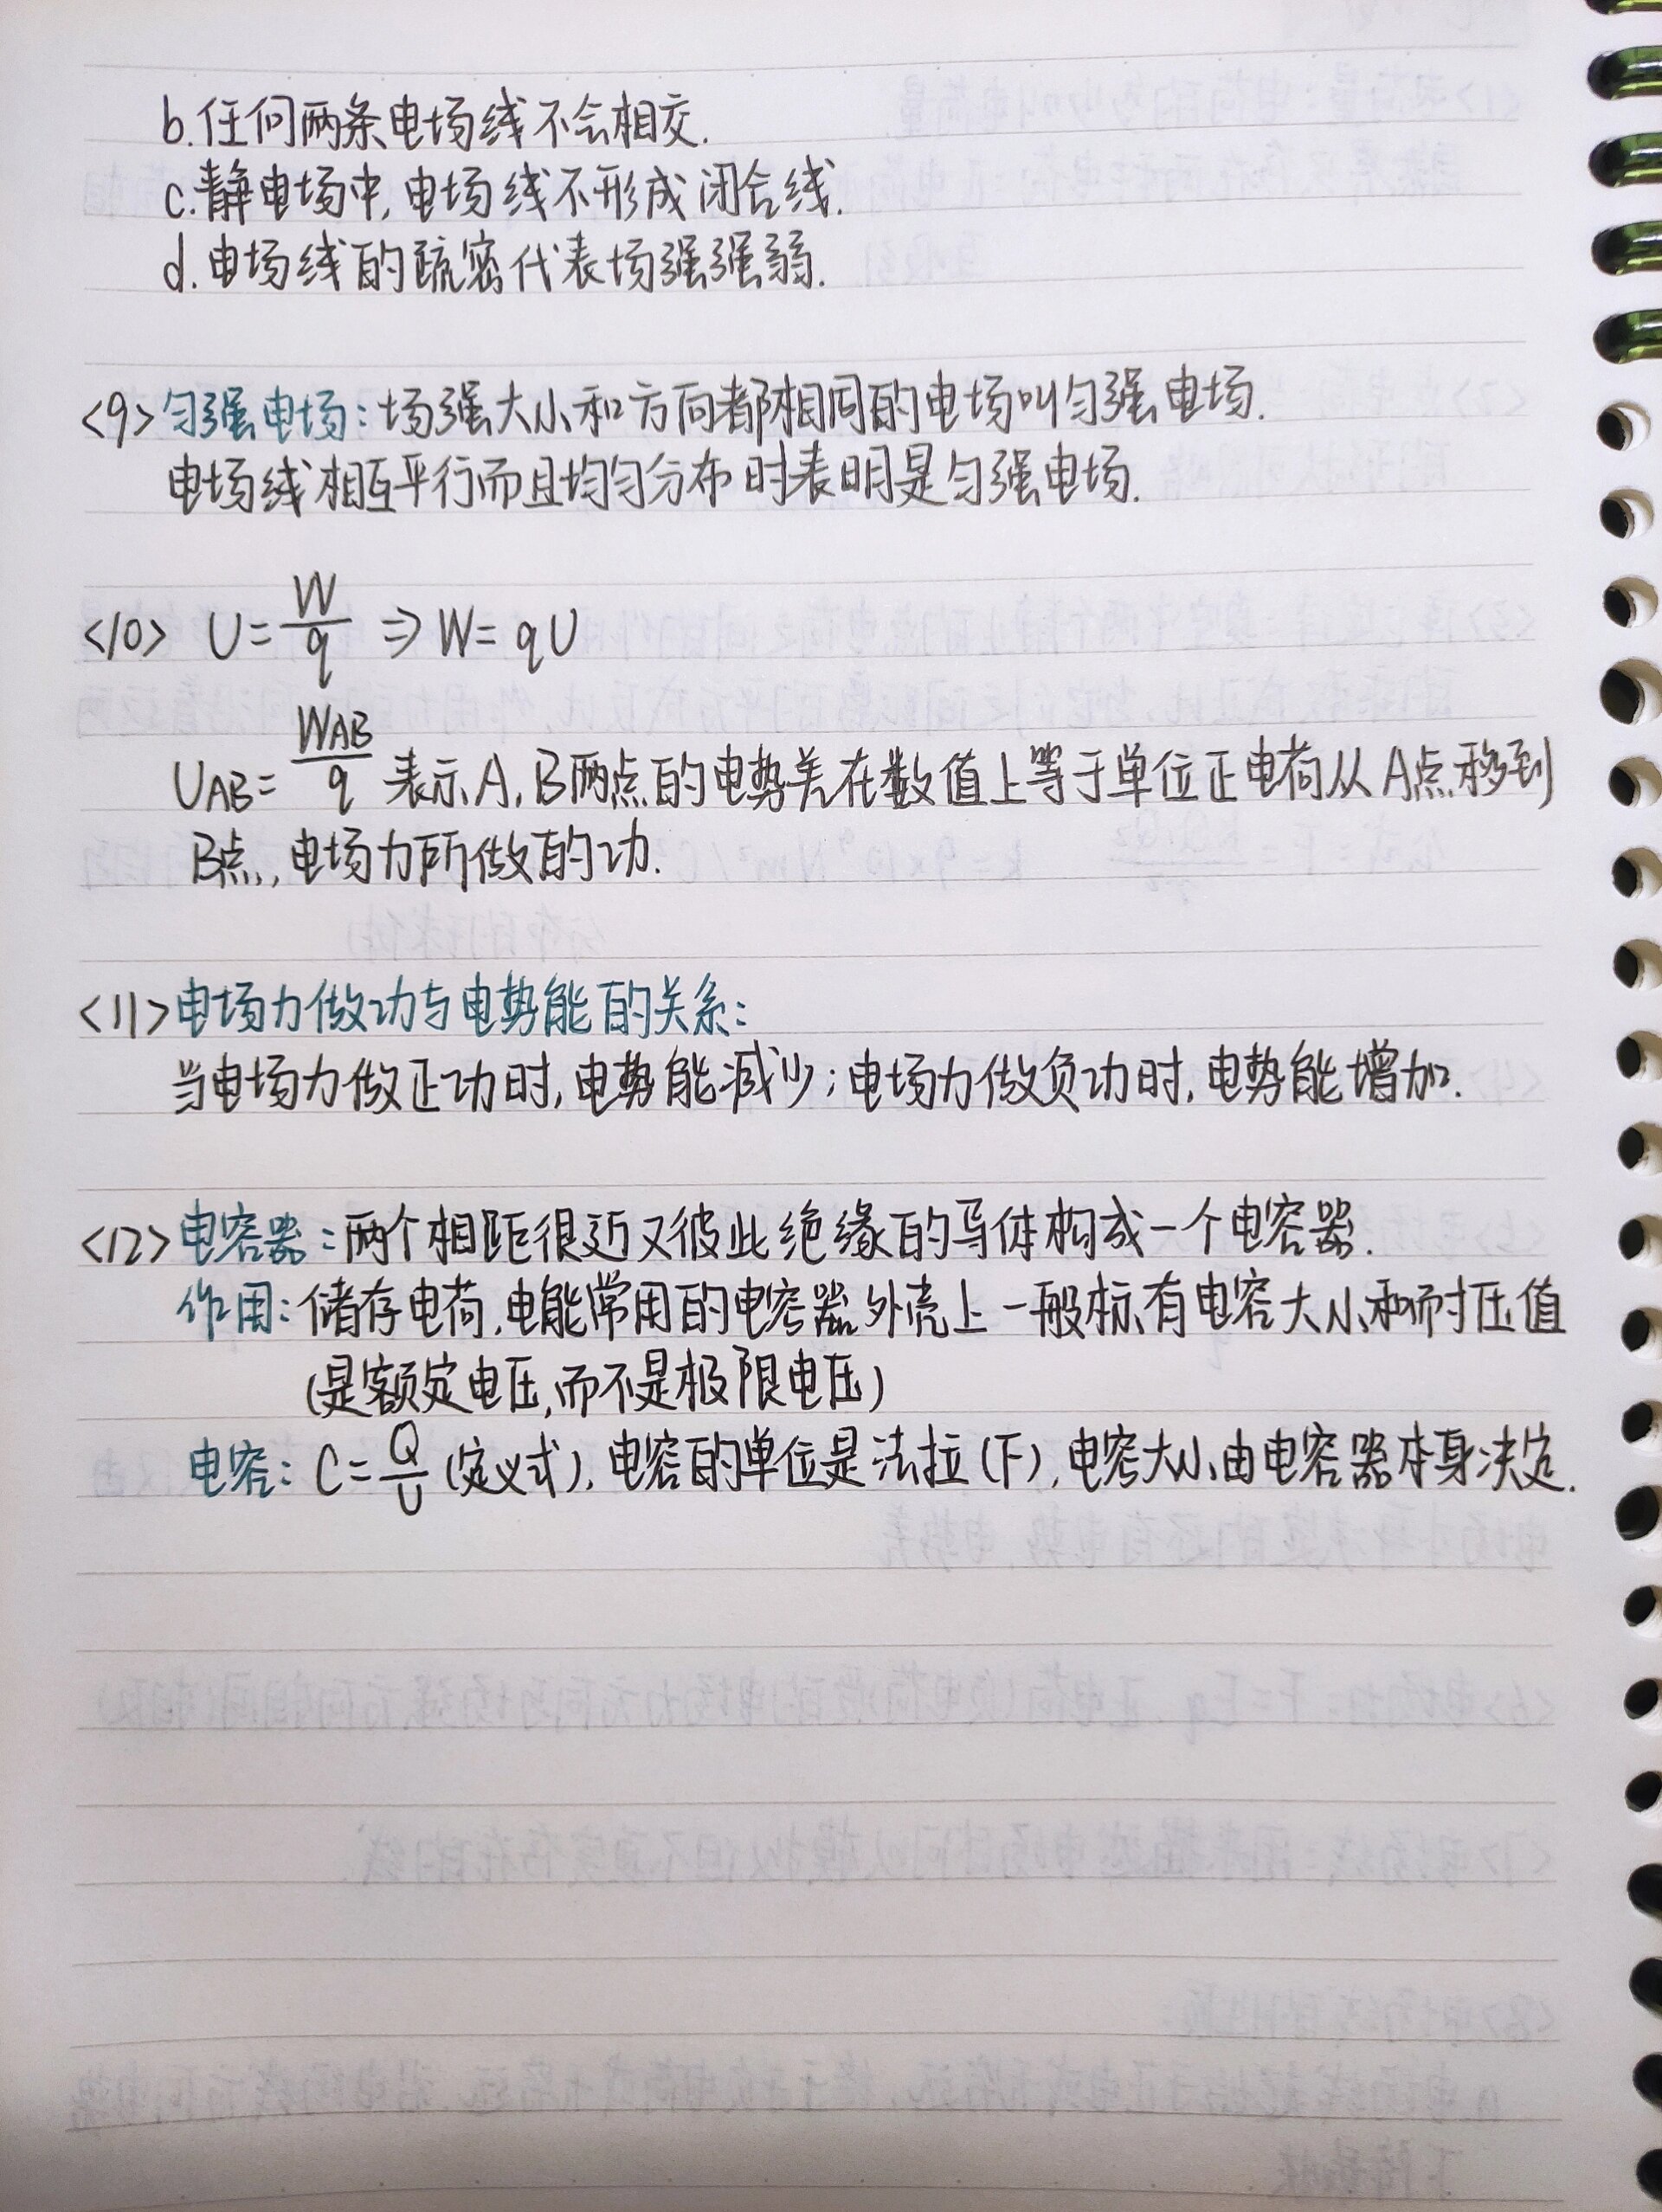 b.任何两条电场线不会相交.
c.静电场中,电场线不形成闭合线.
d.电场线的疏密代表场强强弱.
<9>匀强电场:场强大小和方向都相同的电场叫匀强电场.
电场线相互平行而且均匀分布时表明是匀强电场.
<10> U=W/q ⇒ W=qU
UAB=WAB/q 表示A,B两点的电势差在数值上等于单位正电荷从A点移到
B点,电场力所做的功.
<11>电场力做功与电势能的关系:
当电场力做正功时,电势能减少;电场力做负功时,电势能增加.
<12>电容器:两个相距很近又彼此绝缘的导体构成一个电容器.
作用:储存电荷,电能常用的电容器外壳上一般标有电容大小和耐压值
(是额定电压,而不是极限电压)
电容: C=Q/U (定义式),电容的单位是法拉(F),电容大小由电容器本身决定.